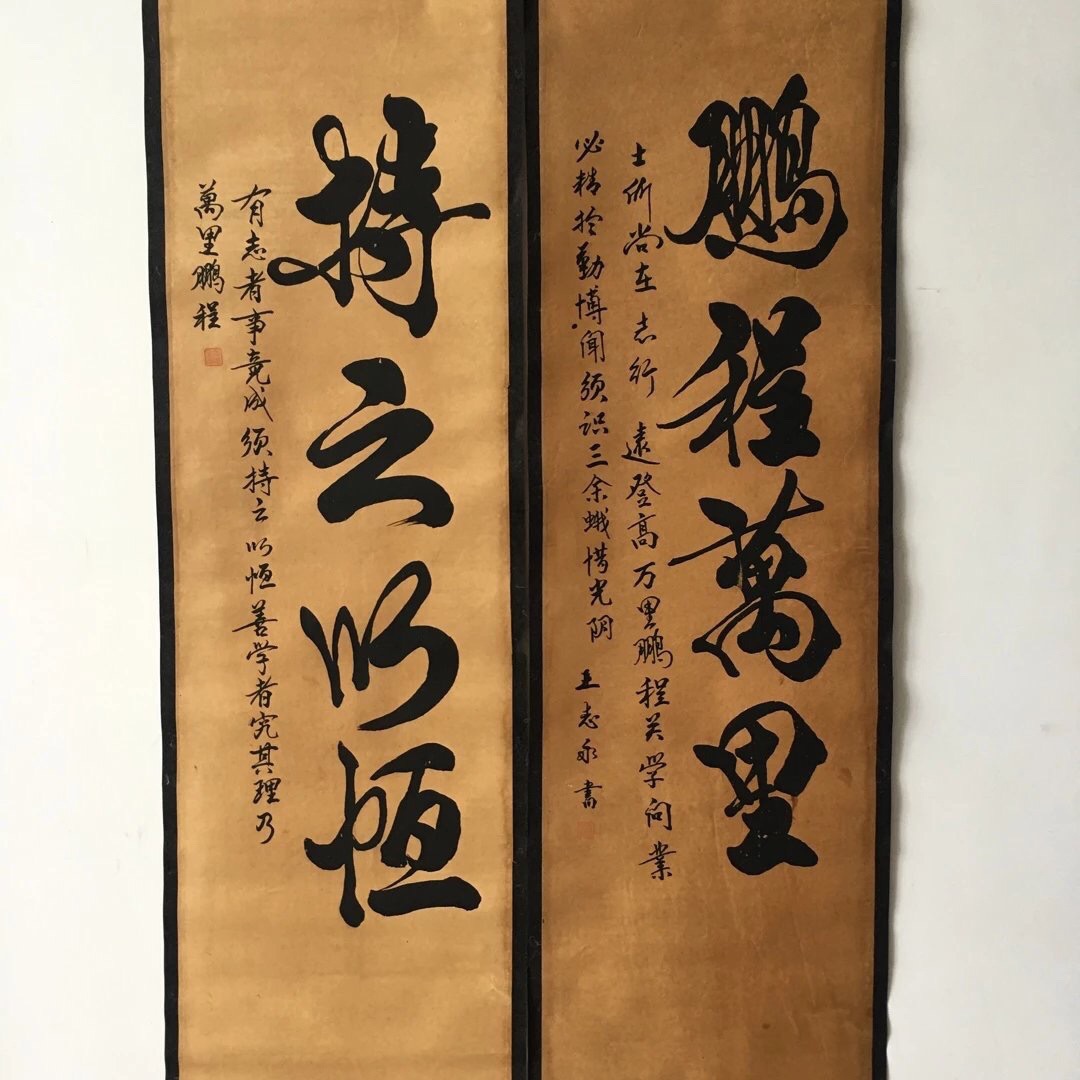 鹏程萬里
士所尚在志行遠登高万里鹏程关学问業
必精於勤博闻须识三余蛾惜光阴
王志永書
持之以恒
有志者事竟成须持之以恒善学者究其理乃
萬里鹏程